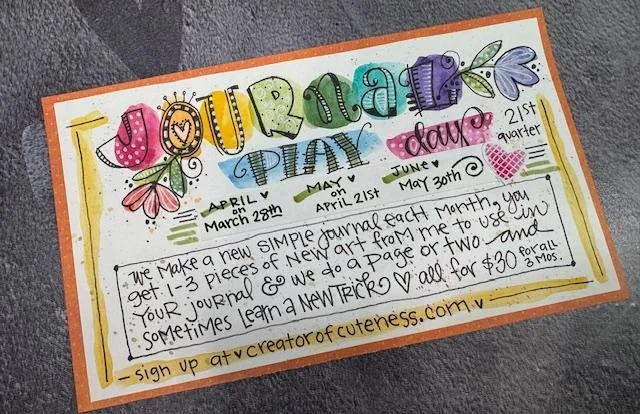 JOURNAL
PLAY day
21st
quarter
APRIL
on
March 28th
MAY
on
April 21st
JUNE
May 30th
We make a new simple journal each month, you
get 1-3 pieces of new art from me to use in
your journal & we do a page or two and
sometimes learn a new trick all for $30 for all
3 mos.
- sign up at creatorofcuteness.com